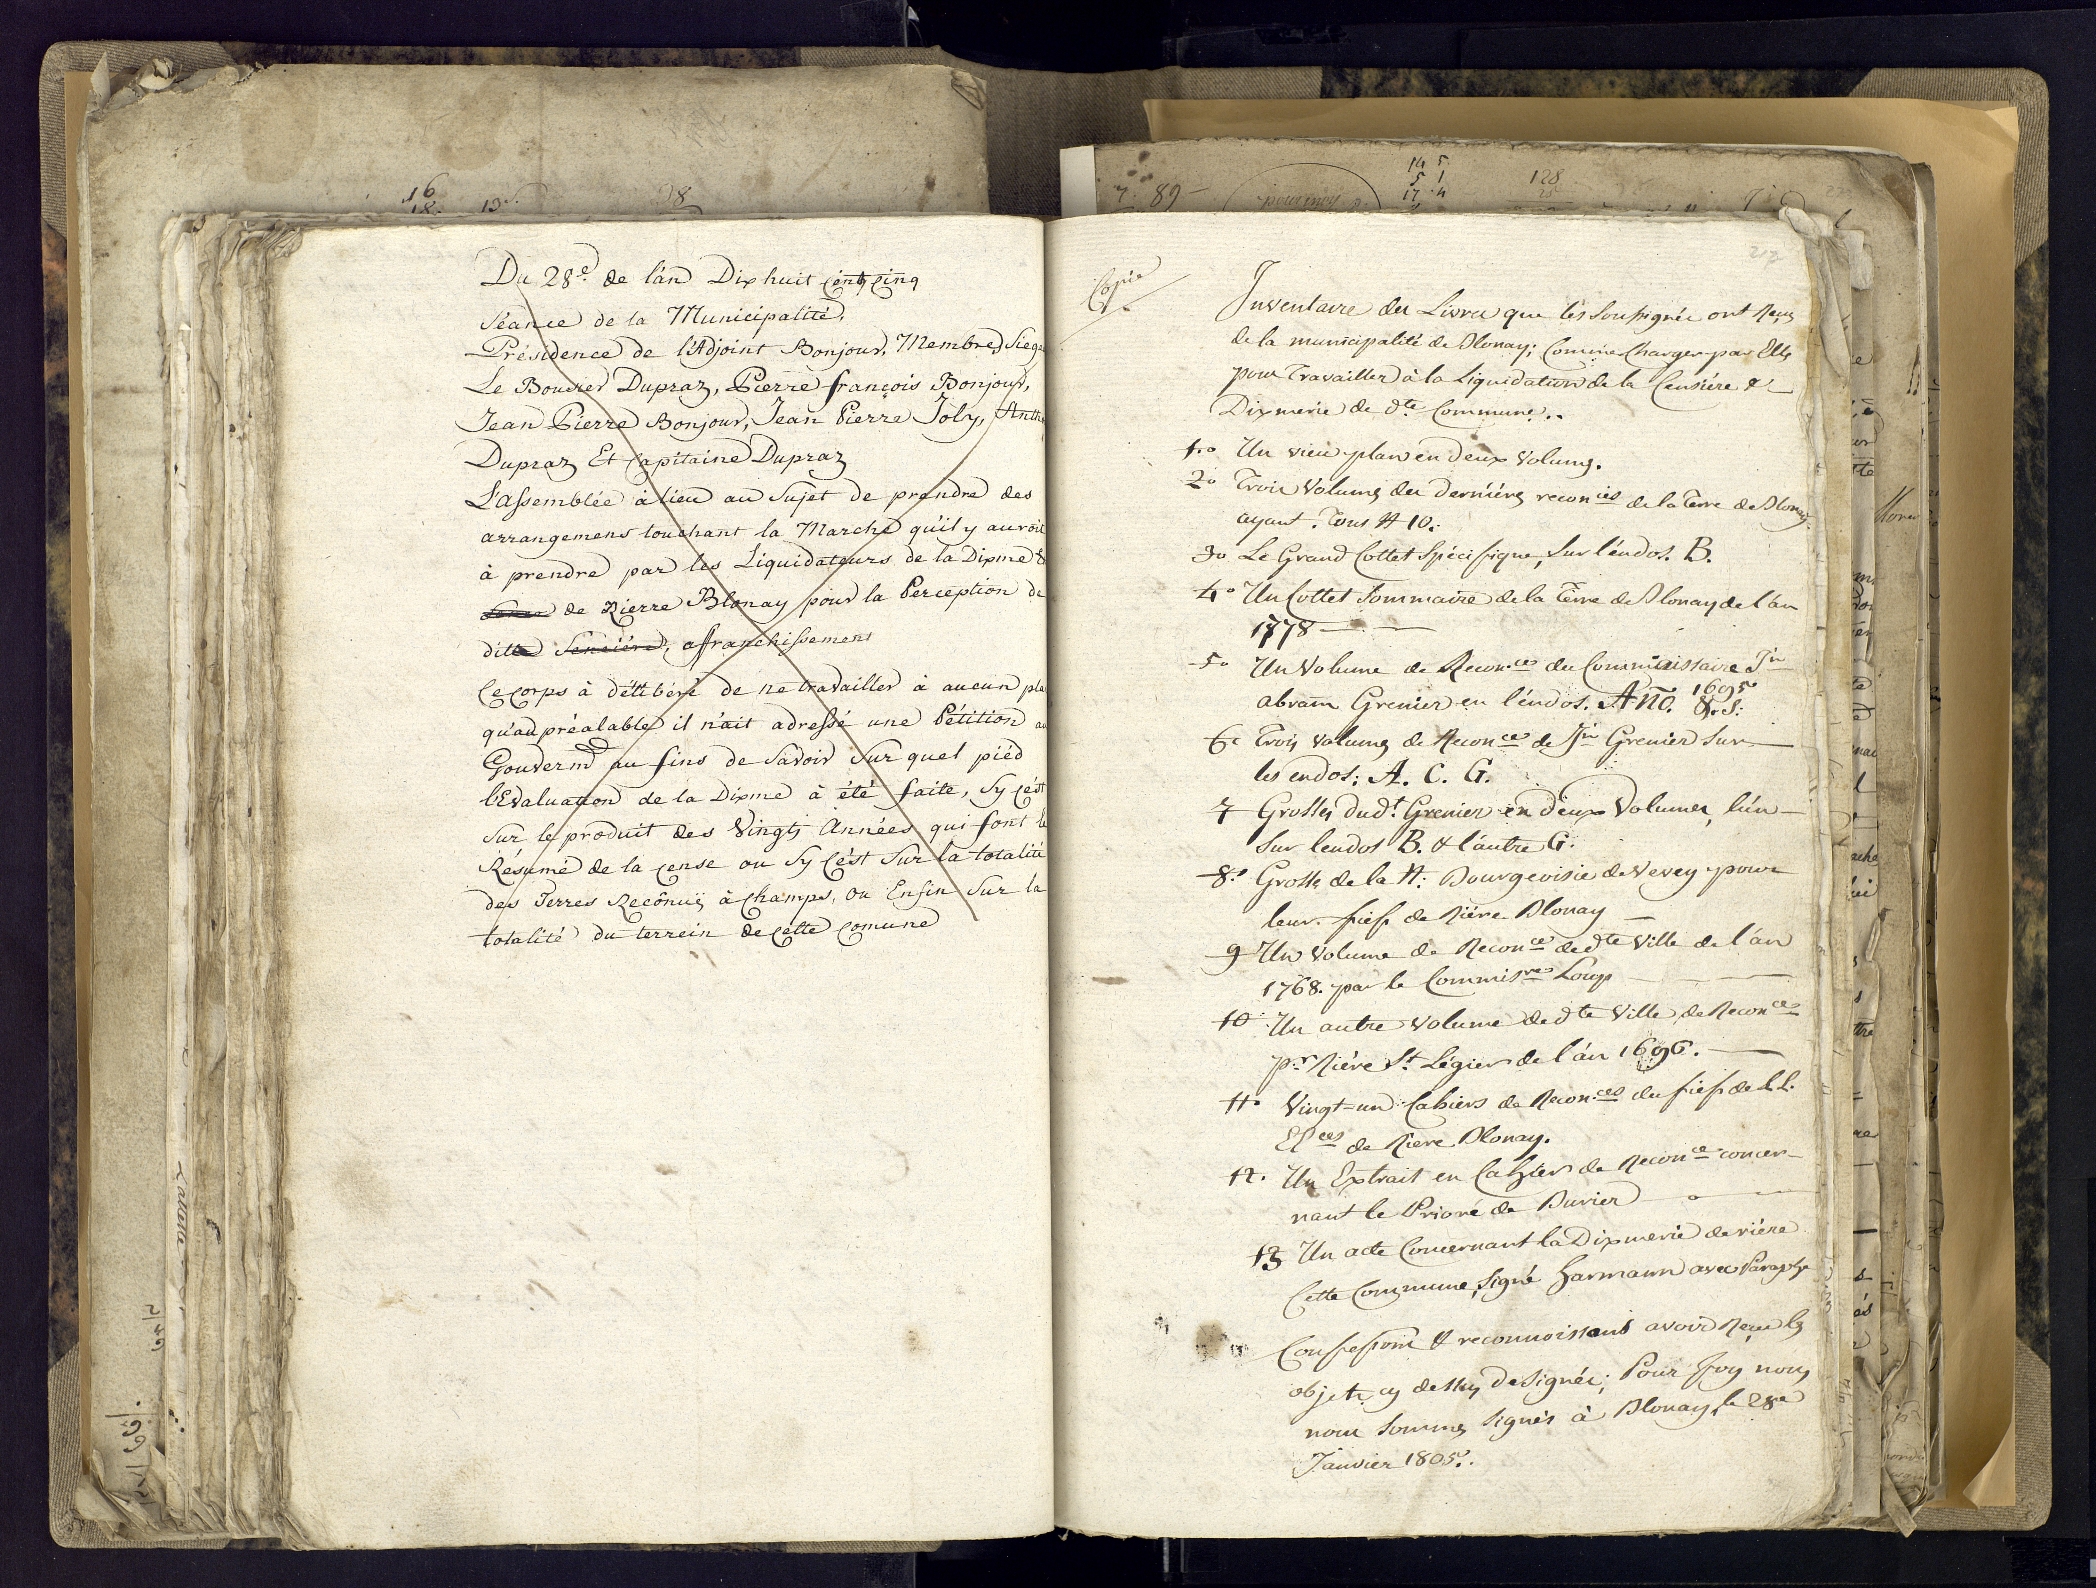 Du 28e. de l'án Dix huit cent cinq
Séance de la Municipalité.
Présidence de l'Adjoint Bonjour, Membres Siege
Le Bourser Dupraz, Pierre françois Bonjour,
Jean Pierre Bonjour, Jean Pierre Joly, Anth
Dupraz Et Capitaine Dupraz
L'assemblée à lieu au Sujet de prendre des
arrangemens touchant la Marche qu'il y auroit
à prendre par les Liquidateurs de la Dixme &
de Rierre Blonay pour la Perception de
ditte Sensiére, affranchissement
Ce Corps à délibéré de ne travailler à aucun pla
qu'au préalable il n'ait adressé une Pétition au
Gouvernmt au fins de Savoir Sur quel piéd
l'Evaluation de la Dixme à été faite, Sy c'ést
Sur le produit des Vingts Années qui font le
Résumé de la cense ou Sy c'ést Sur la totalité
des Terres Recônuës à Champs, ou Enfin Sur la
totalité du terrein de cette Comune
16
18.
28
7. 89
14 5
5 1
17 4
128
25
pour moy
212
Copie
Inventaire des Livres que les Soussignés ont Reçus
de la municipalité de Blonay; Comme Charger par Elle
pour Travailler à la Liquidation de la Censiére &
Dixmerie de dte. Commune..
1.o Un vieu plan en deux Volumes.
2o Trois Volumes des derniéres reconces de la Terre de Blonay.
ayant. Tous No 10.
3o Le Grand Cottet Spécifique, Sur l'éndos. B.
4o Un Cottet Sommaire de la Terre de Blonay de l'an
1778
5o Un Volume de Reconces du Commissaire Jn
abram Grenier en l'éndos. Ano. 1695
8. S:
6o Trois Volumes de Reconces de Jn Grenier Sur
les endos; A. C. G.
7 Grosses dudt. Grenier en deux Volumes, l'ún
Sur lendos B. & l'autre G.
8o Grosse de la N: Bourgeoisie de Vevey pour
leur fief de Riére Blonay
9 Un Volume de Reconce de dte Ville de l'an
1768. par le Commisres Loup
10 Un autre Volume de dte Ville de Reconces
pr. Riére St. Légier de l'án 1696.
11o Vingt-un Cahiers de Reconces du fief de LL.
EEces de Riere Blonay.
12. Un Extrait en Cahier de Reconce concer-
nant le Prioré de Burier
13 Un acte Concernant la Dixmerie deriére
Cette Commune, Signé Harmann avec Paraphe
Confessons & reconnoissans avoir Reçu les
objets cy dessus Designés; Pour foy nous
nous Sommes Signés à Blonay, le 28e
Janvier 1805.